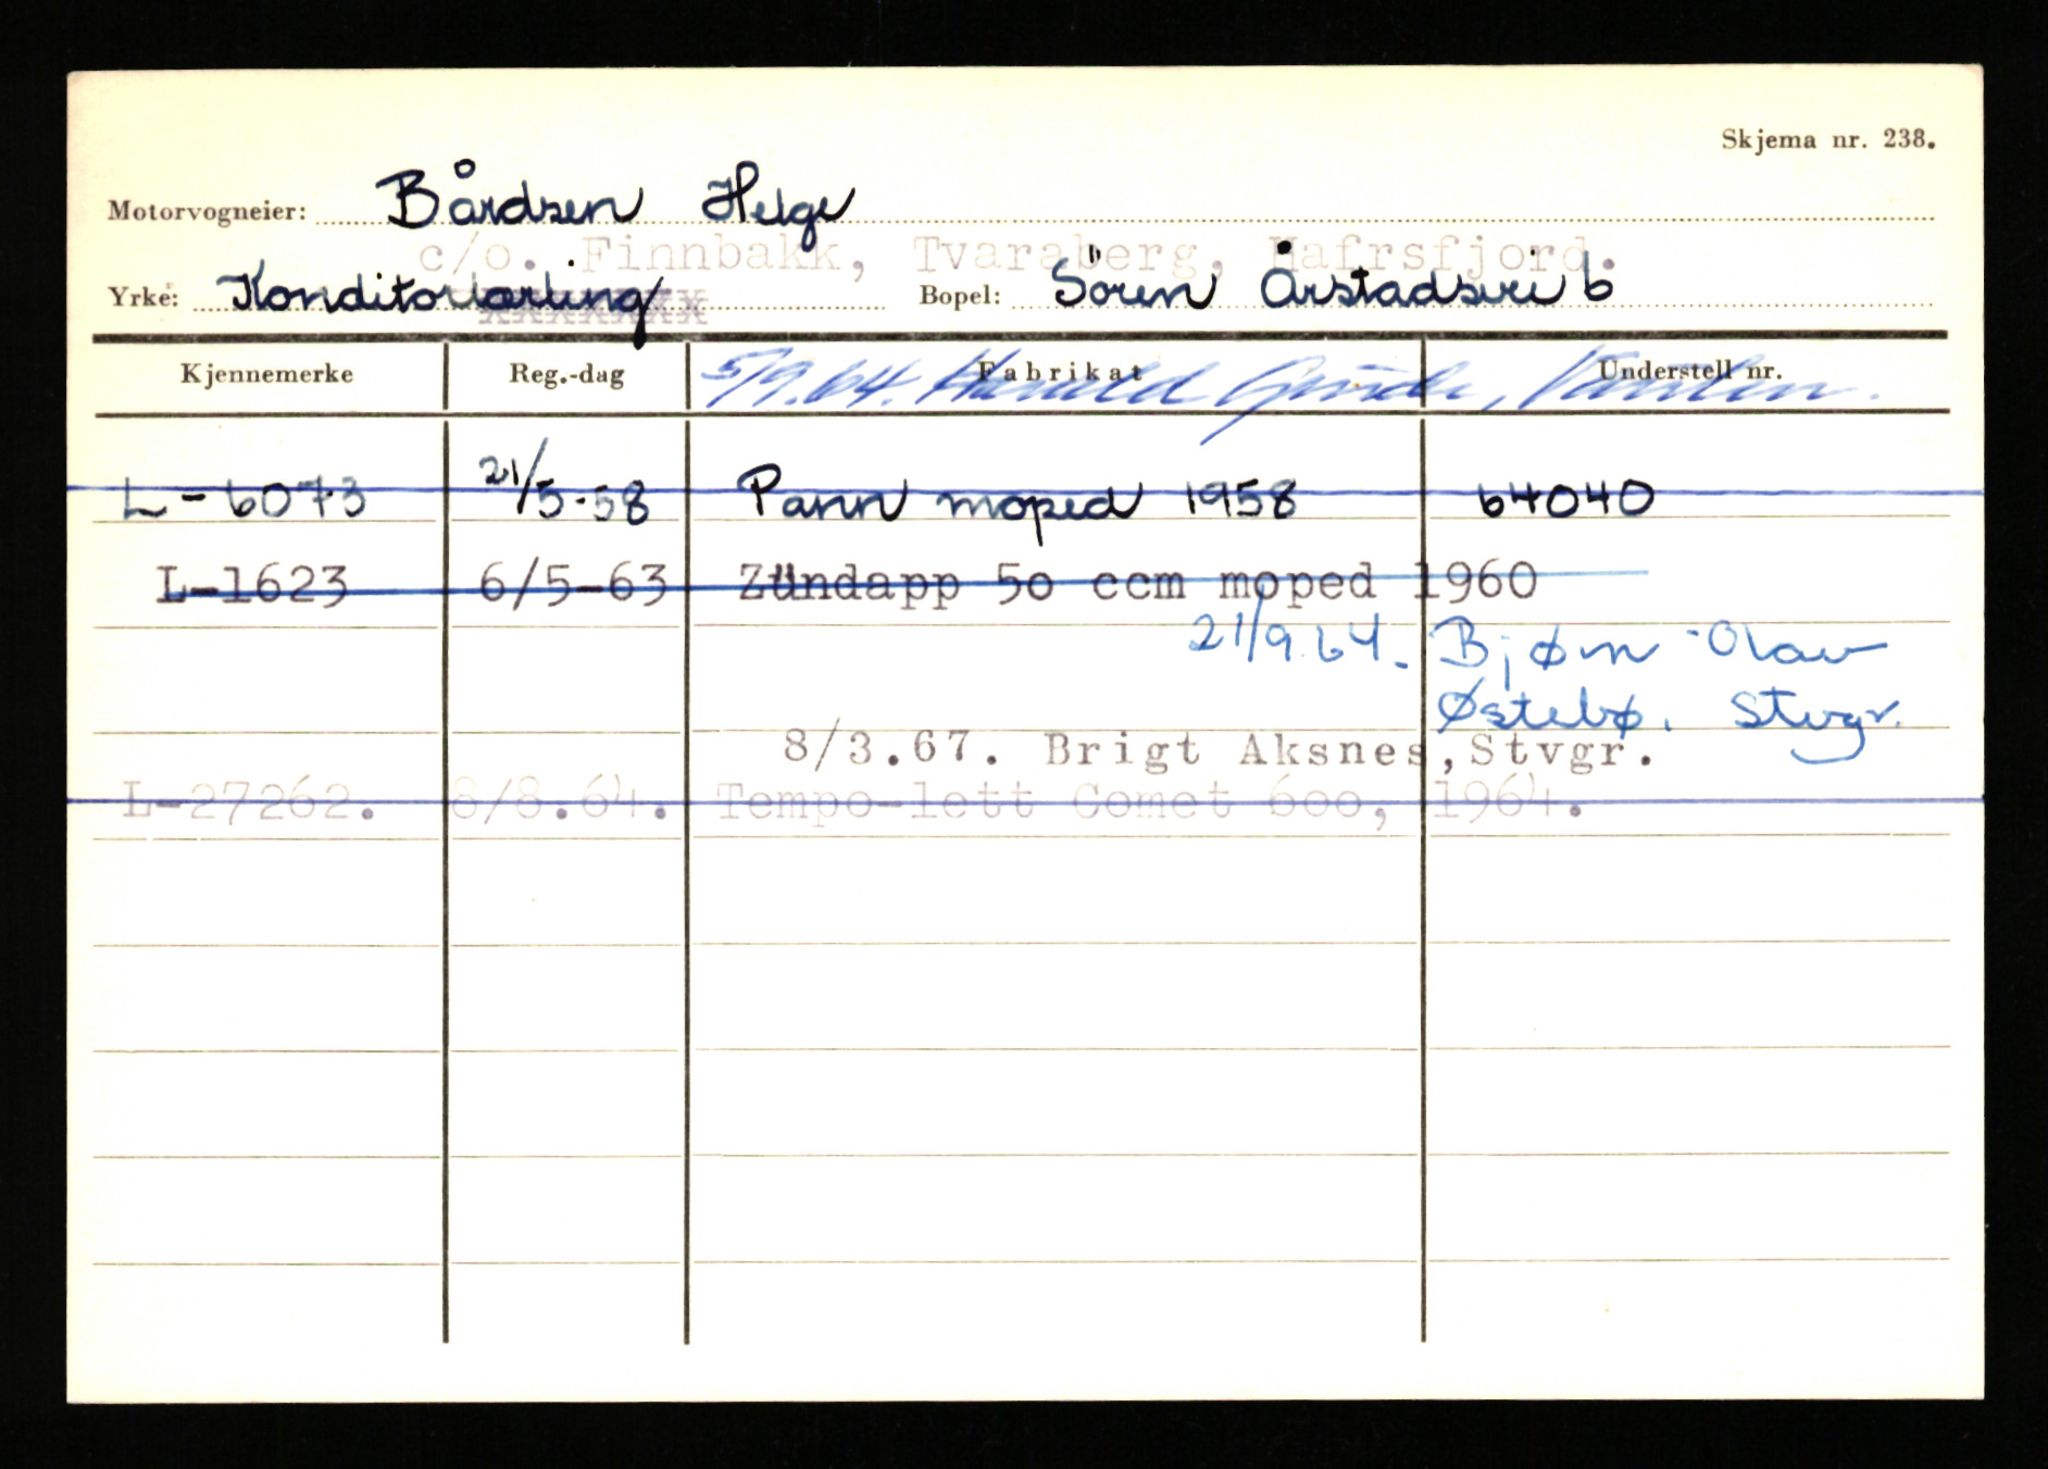 Skjema nr. 238.
Motorvogneier: Bårdsen Helge
c/o. Finnbakk, Tvaraberg, Hafrsfjord.
Yrke: Konditorlærling Bopel: Sören Årstadsvei 6
Kjennemerke Reg.-dag Fabrikat Understell nr.
5/9.64. Harald
L-6073 21/5-58 Pann moped 1958 64040
L-1623 6/5-63 Zündapp 50 ccm moped 1960
21/9.64. Bjørn Olav
Østebø. Stvgr.
8/3.67. Brigt Aksnes, Stvgr.
L-27262. 8/8.64. Tempo-lett Comet 600, 1964.